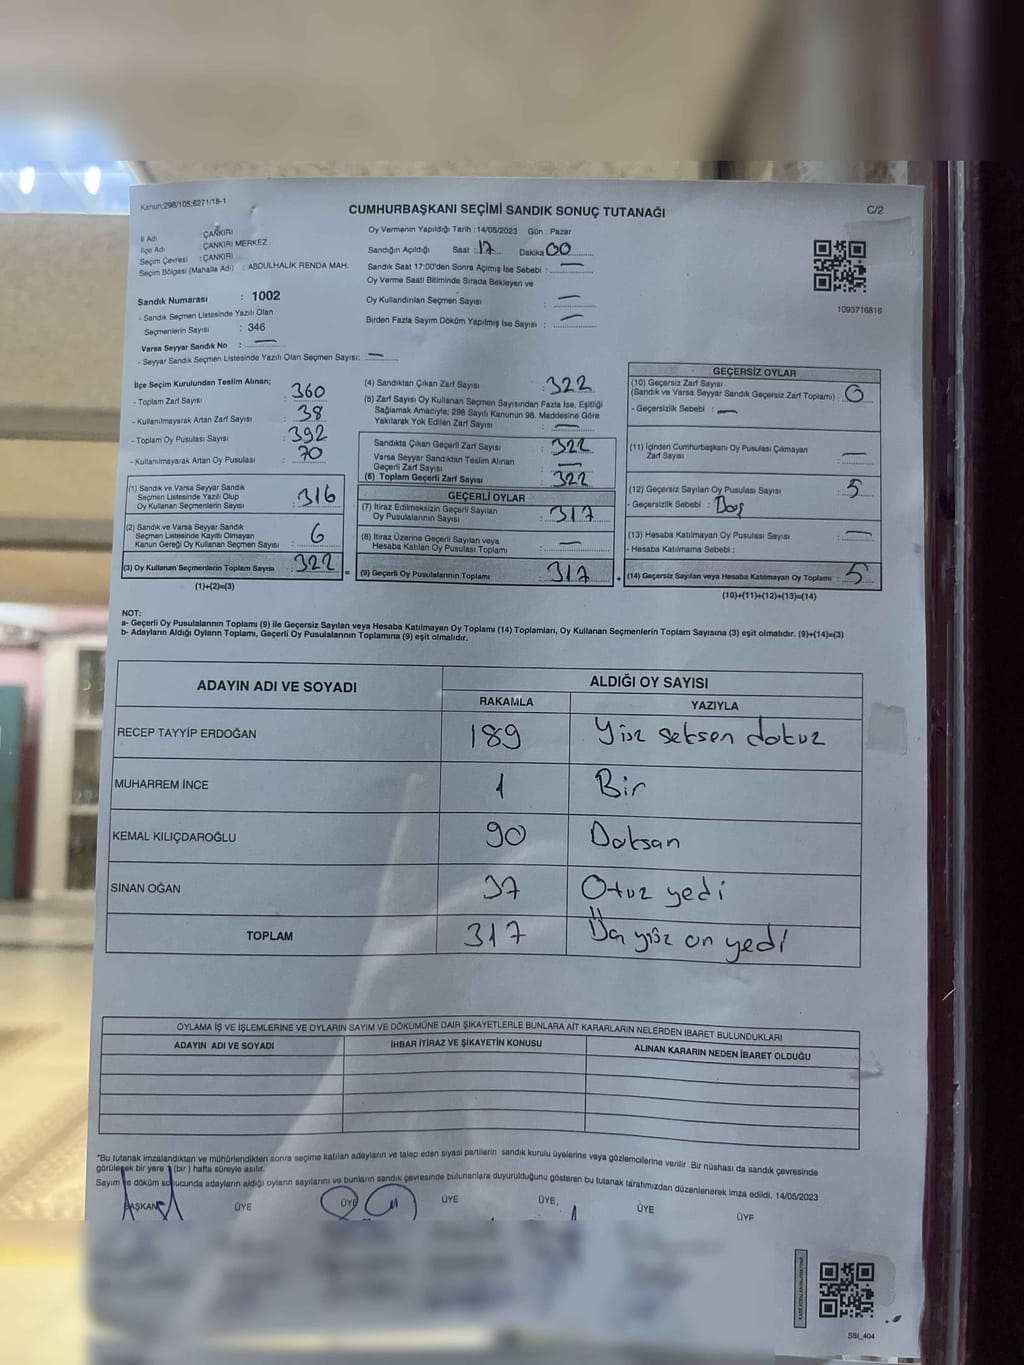 Kanun:298/105;6271/18-1
CUMHURBAŞKANI SEÇİMİ SANDIK SONUÇ TUTANAĞI
C/2
İl Adı : ÇANKIRI
İlçe Adı : ÇANKIRI MERKEZ
Seçim Çevresi : ÇANKIRI
Seçim Bölgesi (Mahalle Adı) : ABDULHALİK RENDA MAH.
Oy Vermenin Yapıldığı Tarih : 14/05/2023 Gün : Pazar
Sandığın Açıldığı Saat : 17 Dakika 00
Sandık Saat 17:00'den Sonra Açımış İse Sebebi : —
Oy Verme Saati Bitiminde Sırada Bekleyen ve
Oy Kullandırılan Seçmen Sayısı : —
Birden Fazla Sayım Döküm Yapılmış İse Sayısı : —
1093716816
Sandık Numarası : 1002
- Sandık Seçmen Listesinde Yazılı Olan
Seçmenlerin Sayısı : 346
Varsa Seyyar Sandık No : —
- Seyyar Sandık Seçmen Listesinde Yazılı Olan Seçmen Sayısı: —
İlçe Seçim Kurulundan Teslim Alınan;
- Toplam Zarf Sayısı : 360
- Kullanılmayarak Artan Zarf Sayısı : 38
- Toplam Oy Pusulası Sayısı : 392
- Kullanılmayarak Artan Oy Pusulası : 70
(1) Sandık ve Varsa Seyyar Sandık
Seçmen Listesinde Yazılı Olup
Oy Kullanan Seçmenlerin Sayısı : 316
(2) Sandık ve Varsa Seyyar Sandık
Seçmen Listesinde Kayıtlı Olmayan
Kanun Gereği Oy Kullanan Seçmen Sayısı : 6
(3) Oy Kullanan Seçmenlerin Toplam Sayısı : 322
(1)+(2)=(3)
(4) Sandıktan Çıkan Zarf Sayısı : 322
(5) Zarf Sayısı Oy Kullanan Seçmen Sayısından Fazla İse, Eşitliği
Sağlamak Amacıyla; 298 Sayılı Kanunun 98. Maddesine Göre
Yakılarak Yok Edilen Zarf Sayısı : —
Sandıkta Çıkan Geçerli Zarf Sayısı : 322
Varsa Seyyar Sandıktan Teslim Alınan
Geçerli Zarf Sayısı : —
(6) Toplam Geçerli Zarf Sayısı : 322
GEÇERLİ OYLAR
(7) İtiraz Edilmeksizin Geçerli Sayılan
Oy Pusulalarının Sayısı : 317
(8) İtiraz Üzerine Geçerli Sayılan veya
Hesaba Katılan Oy Pusulası Toplamı : —
(9) Geçerli Oy Pusulalarının Toplamı : 317
GEÇERSİZ OYLAR
(10) Geçersiz Zarf Sayısı
(Sandık ve Varsa Seyyar Sandık Geçersiz Zarf Toplamı) : 0
- Geçersizlik Sebebi : —
(11) İçinden Cumhurbaşkanı Oy Pusulası Çıkmayan
Zarf Sayısı : —
(12) Geçersiz Sayılan Oy Pusulası Sayısı : 5
- Geçersizlik Sebebi : Boş
(13) Hesaba Katılmayan Oy Pusulası Sayısı : —
- Hesaba Katılmama Sebebi :
(14) Geçersiz Sayılan veya Hesaba Katılmayan Oy Toplamı : 5
(10)+(11)+(12)+(13)=(14)
NOT:
a- Geçerli Oy Pusulalarının Toplamı (9) ile Geçersiz Sayılan veya Hesaba Katılmayan Oy Toplamı (14) Toplamları, Oy Kullanan Seçmenlerin Toplam Sayısına (3) eşit olmalıdır. (9)+(14)=(3)
b- Adayların Aldığı Oyların Toplamı, Geçerli Oy Pusulalarının Toplamına (9) eşit olmalıdır.
ADAYIN ADI VE SOYADI ALDIĞI OY SAYISI
RAKAMLA YAZIYLA
RECEP TAYYİP ERDOĞAN 189 Yüz seksen dokuz
MUHARREM İNCE 1 Bir
KEMAL KILIÇDAROĞLU 90 Doksan
SİNAN OĞAN 37 Otuz yedi
TOPLAM 317 Üç yüz on yedi
OYLAMA İŞ VE İŞLEMLERİNE VE OYLARIN SAYIM VE DÖKÜMÜNE DAİR ŞİKAYETLERLE BUNLARA AİT KARARLARIN NELERDEN İBARET BULUNDUKLARI
ADAYIN ADI VE SOYADI İHBAR İTİRAZ VE ŞİKAYETİN KONUSU ALINAN KARARIN NEDEN İBARET OLDUĞU
*Bu tutanak imzalandıktan ve mühürlendikten sonra seçime katılan adayların ve talep eden siyasi partilerin sandık kurulu üyelerine veya gözlemcilerine verilir .Bir nüshası da sandık çevresinde
görülecek bir yere 1 (bir ) hafta süreyle asılır.
Sayım ve döküm sonucunda adayların aldığı oyların sayılarını ve bunların sandık çevresinde bulunanlara duyurulduğunu gösteren bu tutanak tarafımızdan düzenlenerek imza edildi. 14/05/2023
BAŞKAN ÜYE ÜYE ÜYE ÜYE. ÜYE ÜYE
SSI_404